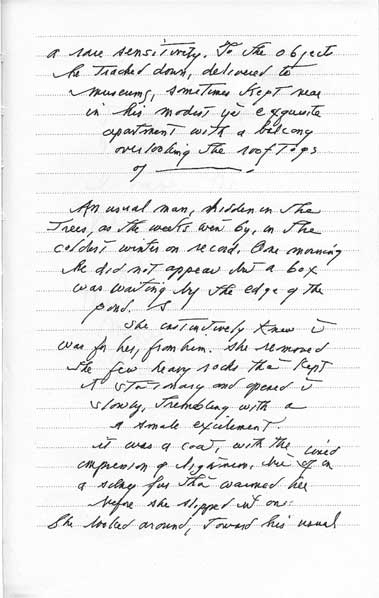 a rare sensitivity. To the objects
he tracked down, delivered to
museums, sometimes kept near
in his modest yet exquisite
apartment with a balcony
overlooking the rooftops
of ________.
An usual man, hidden in the
trees, as the weeks went by, in the
coldest winter on record. One morning
he did not appear but a box
was waiting by the edge of the
pond. S
She instinctively knew it
was for her, from him. She removed
the few heavy rocks that kept
it stationary and opened it
slowly, trembling with a
a small excitement.
it was a coat, with the lined
compression of
a fur that warmed her
before she slipped it on.
She looked around, toward his usual